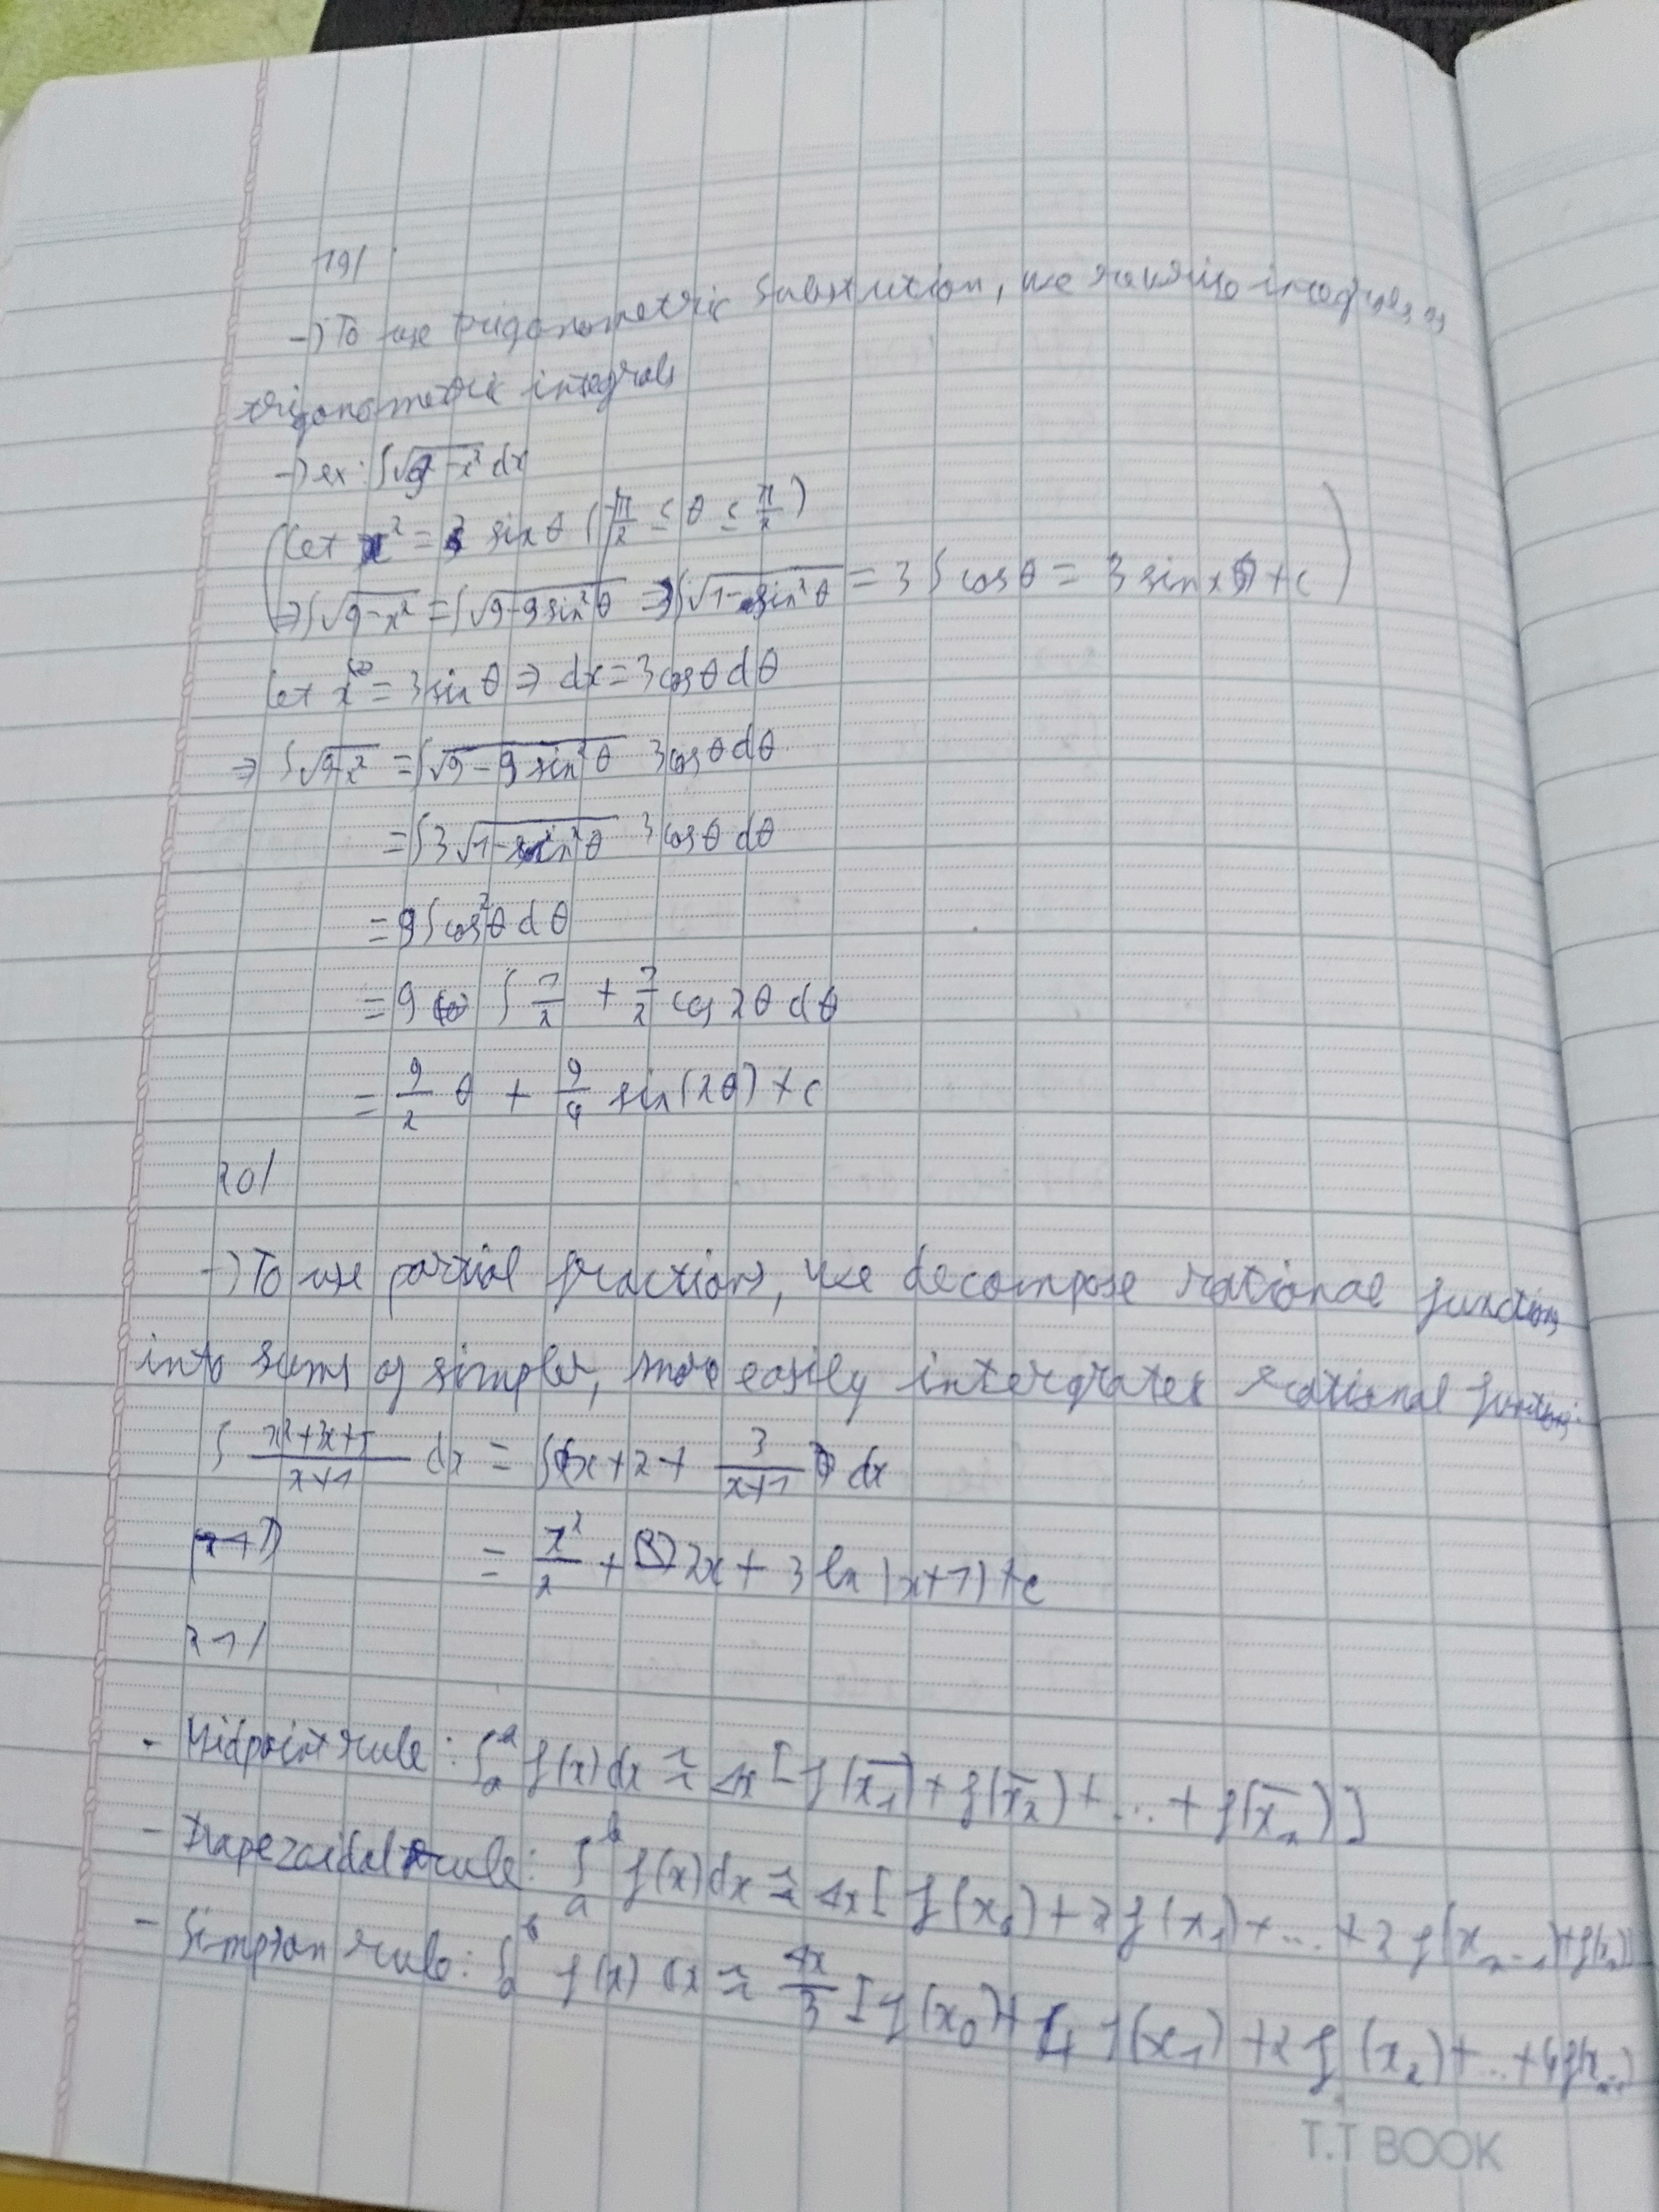 19/
-) To use trigonometric substution, we rewrite integrals as
trigonometric integrals
-) ex: ∫√(9-x²) dx
(Let x² = 3 sin θ (-π/2 ≤ θ ≤ π/2)
⇒ ∫√(9-x²) = ∫√(9-9sin²θ) = 3∫√(1-sin²θ) = 3∫cosθ = 3 sin x + c)
Let x = 3 sin θ ⇒ dx = 3cosθ dθ
⇒ ∫√(9-x²) = ∫√(9-9sin²θ) 3cosθ dθ
= ∫3√(1-sin²θ) 3cosθ dθ
= 9∫cos²θ dθ
= 9 ∫ 1/2 + 1/2 cos 2θ dθ
= 9/2 θ + 9/4 sin(2θ) + c
20/
-) To use partial fractions, we decompose rational functions
into sums of simpler, more easily intergrates rational functions.
∫ (x²+3x+5)/(x+1) dx = ∫(x+2+ 3/(x+1)) dx
= x²/2 + 2x + 3 ln |x+1| + c
21/
- Midpoint rule: ∫ₐ² f(x) dx ≈ Δx [f(x̄₁) + f(x̄₂) + ... + f(x̄ₙ)]
- Trapezoidal rule: ∫ₐᵇ f(x) dx ≈ Δx [f(x₀) + 2f(x₁) + ... + 2f(xₙ₋₁) + f(xₙ)]
- Simpson rule: ∫ₐᵇ f(x) dx ≈ Δx/3 [f(x₀) + 4f(x₁) + 2f(x₂) + ... + 4f(xₙ₋₁)
T.T BOOK